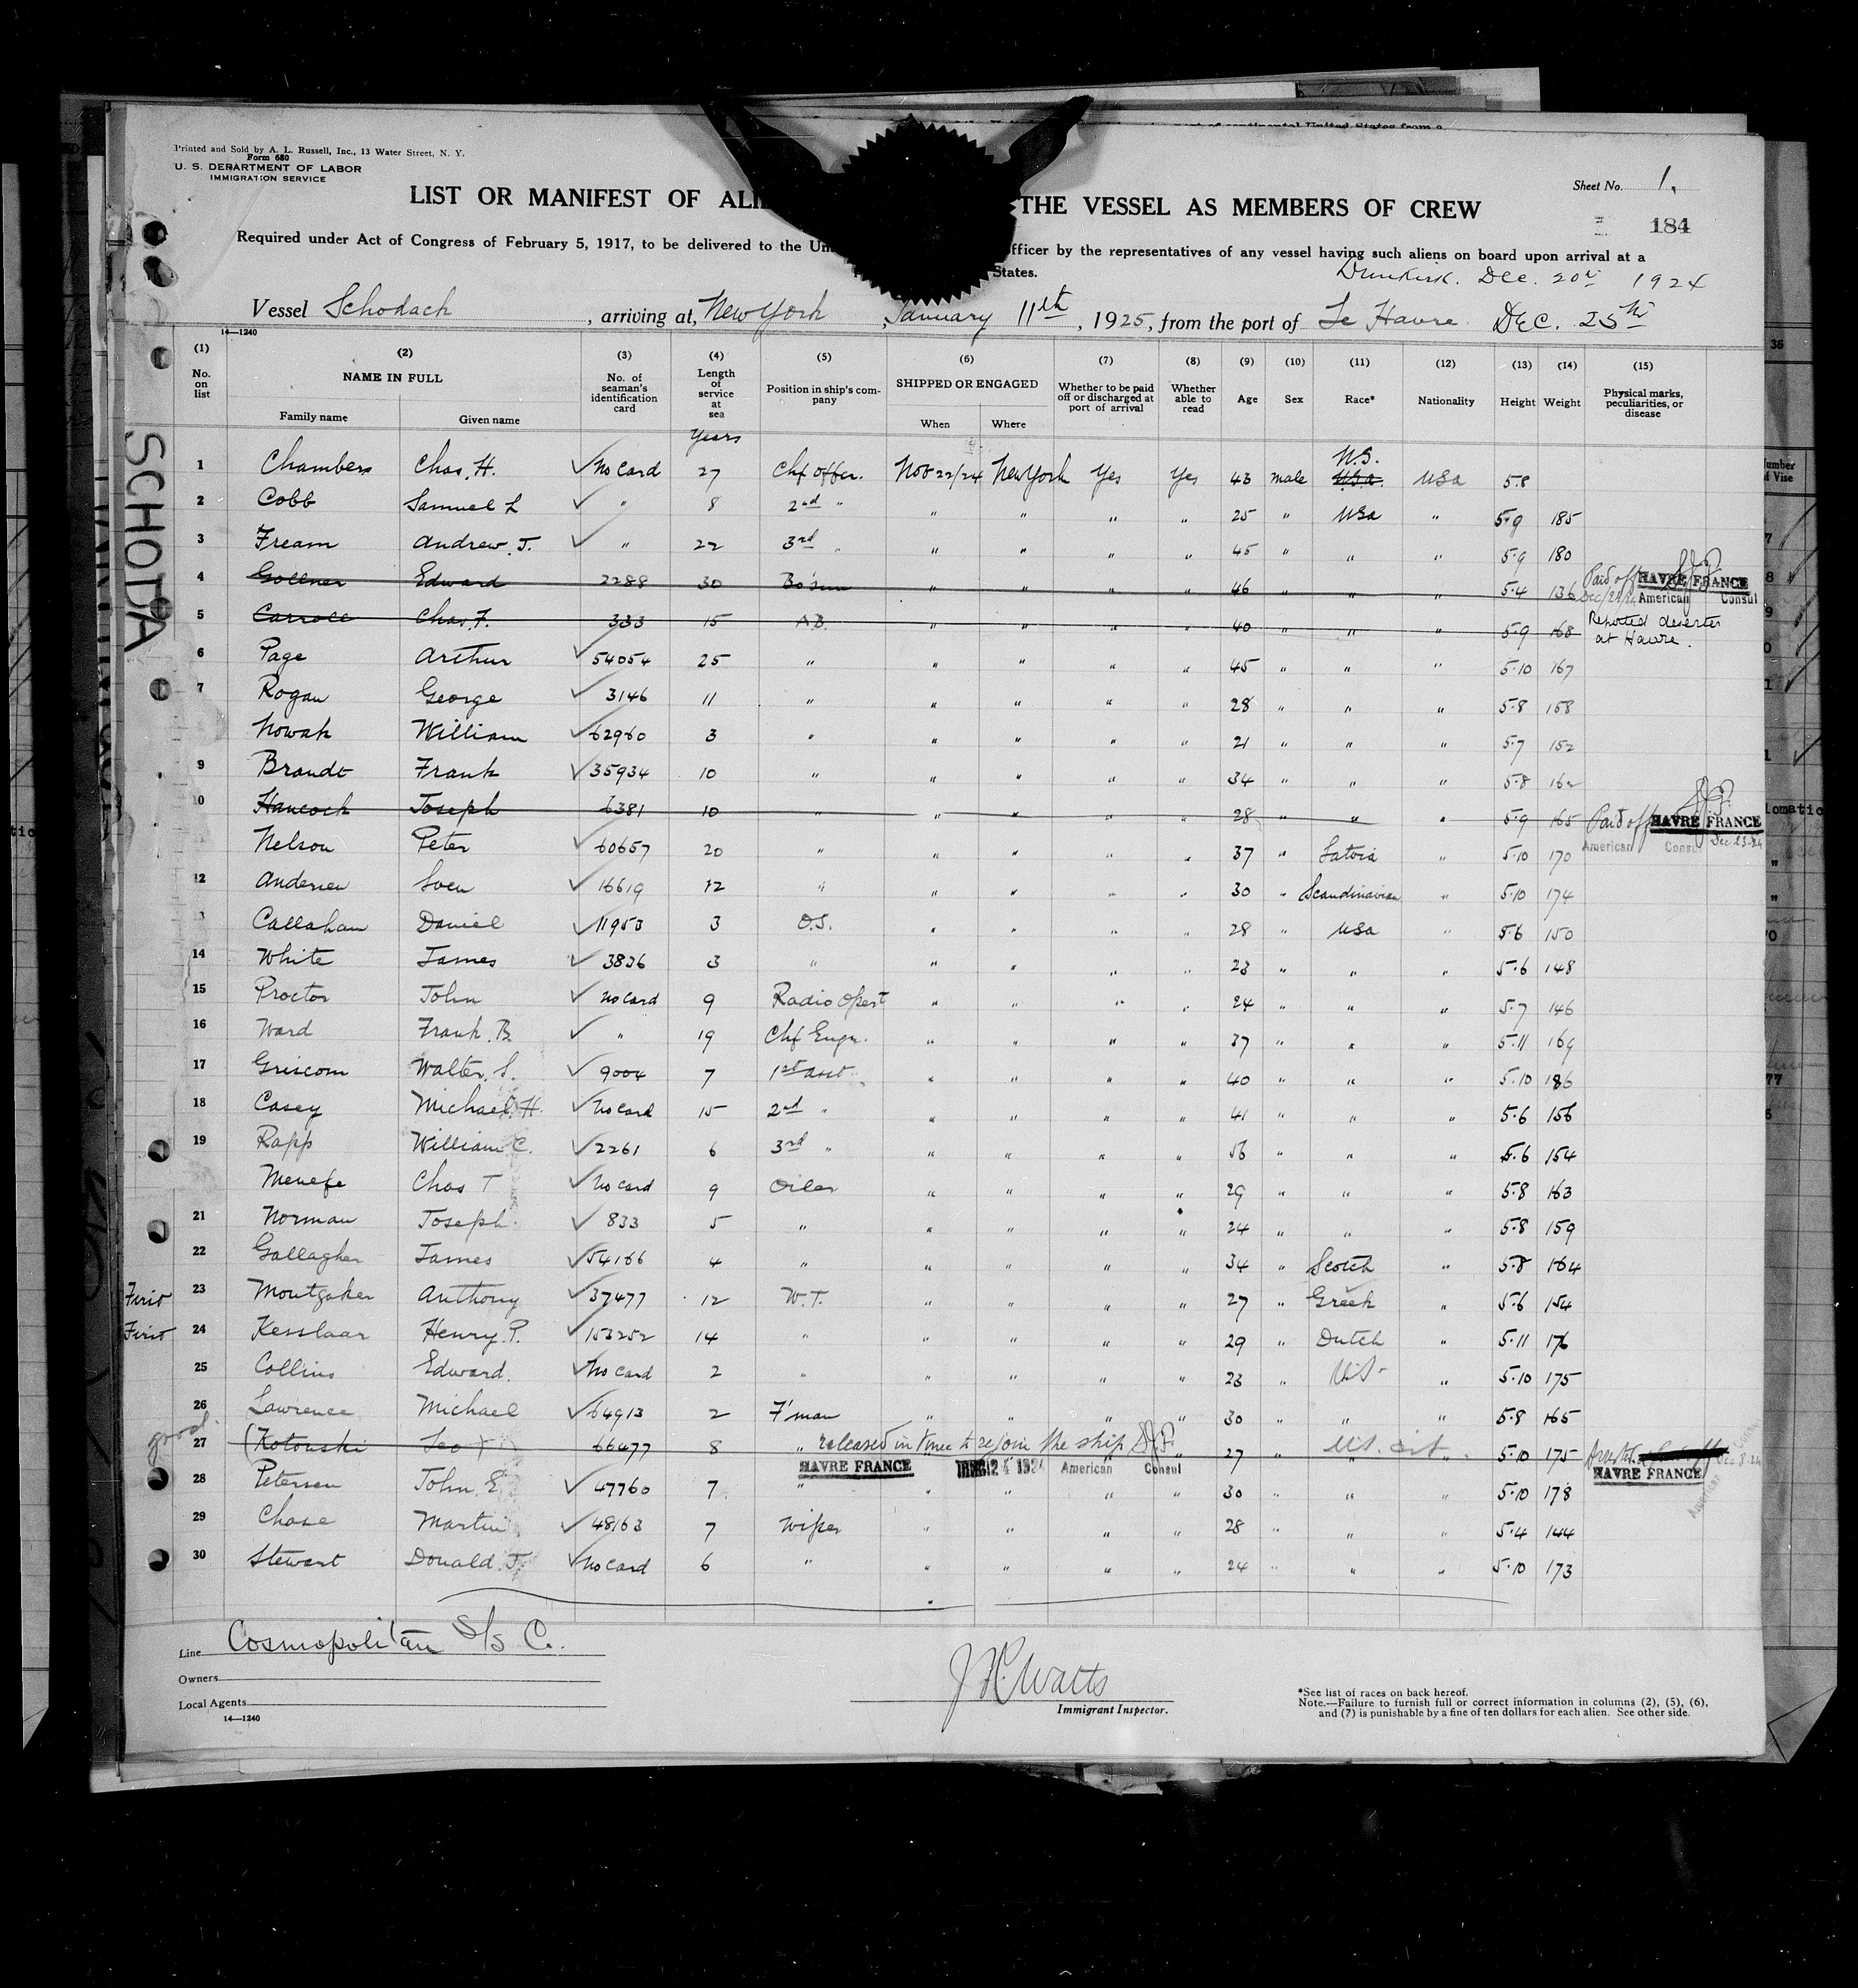 Printed and Sold by A. L. Russell, Inc., 13 Water Street, N. Y.
Form 680
U. S. DEPARTMENT OF LABOR
IMMIGRATION SERVICE
Sheet No. 1.
184
LIST OR MANIFEST OF ALI THE VESSEL AS MEMBERS OF CREW
Required under Act of Congress of February 5, 1917, to be delivered to the Un officer by the representatives of any vessel having such aliens on board upon arrival at a
States.
Dunkirk. Dec. 20th 1924
Vessel Schodack, arriving at, New York, January 11th, 1925, from the port of Le Havre Dec. 25th
14—1240
SCHODA
(1) No. on list (2) NAME IN FULL Family name Given name (3) No. of seaman's identification card (4) Length of service at sea (5) Position in ship's company (6) SHIPPED OR ENGAGED When Where (7) Whether to be paid off or discharged at port of arrival (8) Whether able to read (9) Age (10) Sex (11) Race* (12) Nationality (13) Height (14) Weight (15) Physical marks, peculiarities, or disease
Years
1 Chambers Chas. H. ✓ No Card 27 Chf Offcr. Nov 22/24 New York Yes Yes 43 male U.S. U.S.A. USA 5-8
2 Cobb Samuel L ✓ " 8 2nd " " " " " 25 " USA " 5-9 185
3 Fream Andrew. J. ✓ " 22 3rd " " " " " 45 " " " 5-9 180
4 Gollner Edward 2288 30 Bo'sun " " " " 46 " " " 5-4 136 Paid off HAVRE FRANCE American Consul
5 Carroll Chas. F. 333 15 A.B. " " " " 40 " " " 5-9 168 Reported deserter at Havre.
6 Page Arthur ✓ 54054 25 " " " " " 45 " " " 5-10 167
7 Rogan George ✓ 3146 11 " " " " " 28 " " " 5-8 158
Nowak William ✓ 62960 3 " " " " " 21 " " " 5-7 152
9 Brandt Frank ✓ 35934 10 " " " " " 34 " " " 5-8 162
10 Hancock Joseph 6381 10 " " " " " 28 " " " 5-9 165 Paid off HAVRE FRANCE American Consul Dec 23-24
Nelson Peter ✓ 60657 20 " " " " " 37 " Latvia " 5-10 170
12 Andersen Sven ✓ 16619 12 " " " " " 30 " Scandinavian " 5-10 174
3 Callaham Daniel ✓ 11953 3 O.S. " " " " 28 " USA " 5-6 150
14 White James ✓ 3836 3 " " " " " 23 " " " 5-6 148
15 Proctor John ✓ No card 9 Radio Opert " " " " 24 " " " 5-7 146
16 Ward Frank. B. ✓ " 19 Chf Engr. " " " " 37 " " " 5-11 169
17 Griscom Walter. S. ✓ 9004 7 1st asst. " " " " 40 " " " 5-10 186
18 Casey Michael. H. ✓ No card 15 2nd " " " " " 41 " " " 5-6 156
19 Rapp William C. ✓ 2261 6 3rd " " " " " 56 " " " 5-6 154
Menefe Chas T ✓ No card 9 Oiler " " " " 29 " " " 5-8 163
21 Norman Joseph. ✓ 833 5 " " " " " 24 " " " 5-8 159
22 Gallagher James ✓ 54166 4 " " " " " 34 " Scotch " 5-8 164
First 23 Montgaker Anthony ✓ 37477 12 W.T. " " " " 27 " Greek " 5-6 154
First 24 Kesslaar Henry. P. ✓ 153252 14 " " " " " 29 " Dutch " 5-11 176
25 Collins Edward. ✓ No card 2 " " " " " 23 " U.S. " 5-10 175
26 Lawrence Michael ✓ 64913 2 F'man " " " " 30 " " " 5-8 165
good. 27 (Kotouski Leo) 66477 8 " released in time to rejoin the ship S.J.P. " 27 " U.S. cit. " 5-10 175
HAVRE FRANCE DEC 24 1924 American Consul HAVRE FRANCE
28 Petersen John. E. ✓ 47760 7 " " " " " 30 " " " 5-10 178
29 Chase Martin ✓ 48163 7 Wiper " " " " 28 " " " 5-4 144
30 Stewart Donald. J. ✓ No card 6 " " " " " 24 " " " 5-10 173
Line Cosmopolitan S/S C.
Owners
Local Agents
14—1240
J H Watts
Immigrant Inspector.
*See list of races on back hereof.
Note.—Failure to furnish full or correct information in columns (2), (5), (6),
and (7) is punishable by a fine of ten dollars for each alien. See other side.